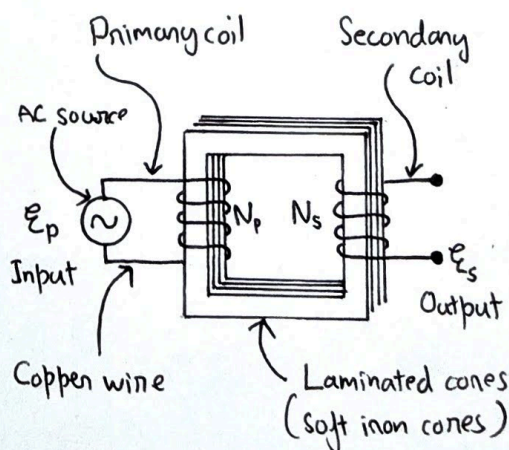 Primary coil
Secondary
coil
AC source
~
ξp
Np
Ns
ξs
Input
Output
Copper wire
Laminated cores
(soft iron cores)